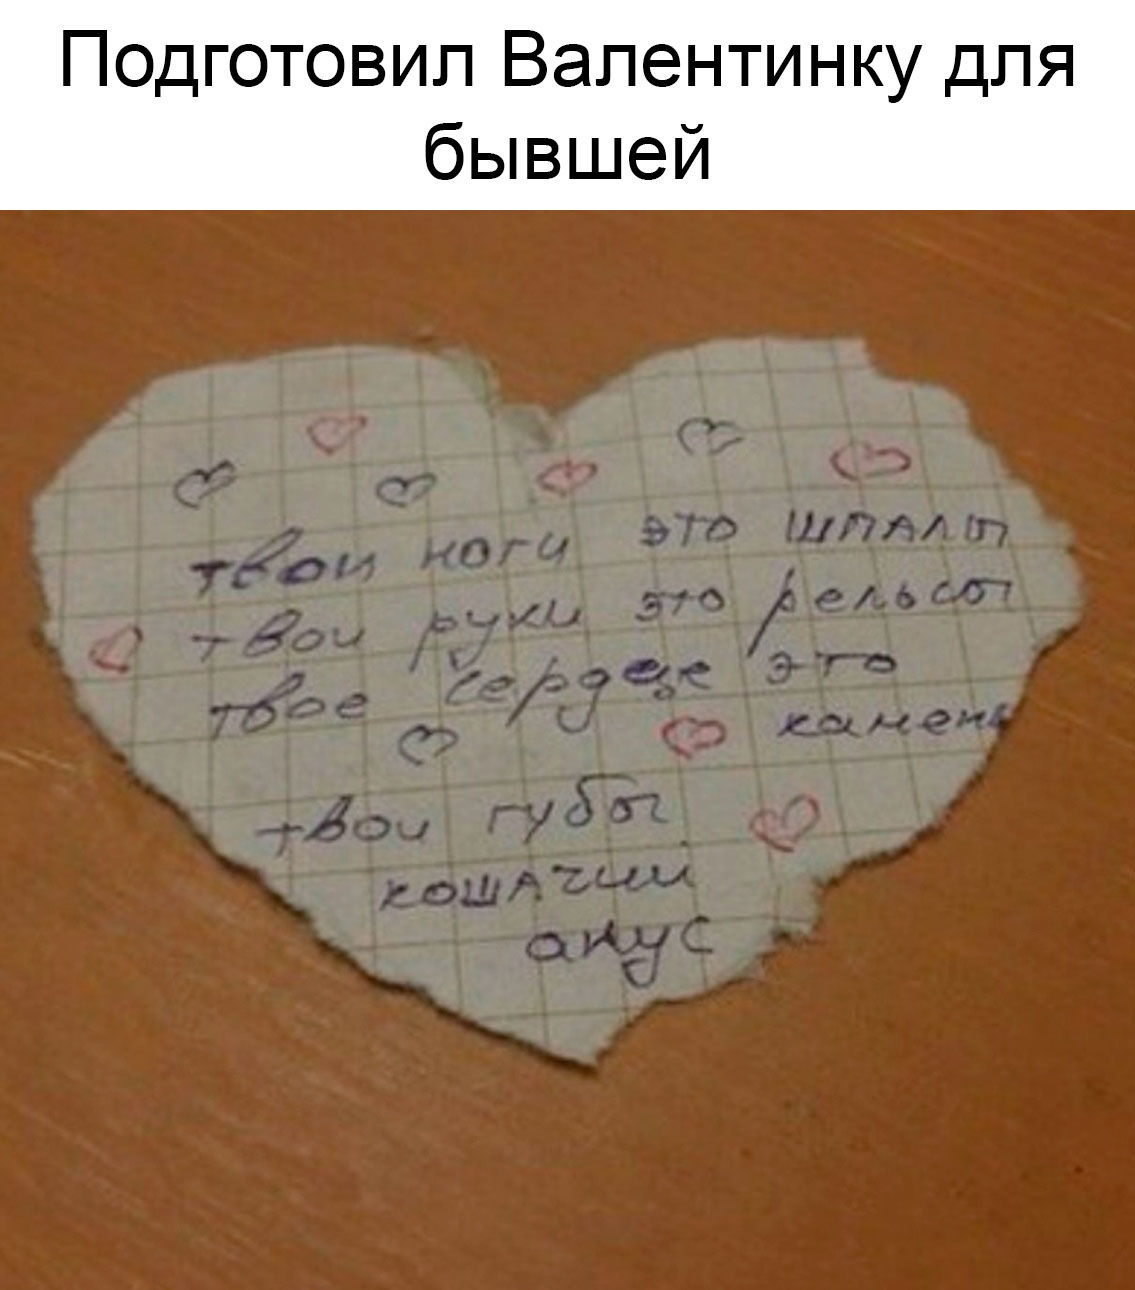 Подготовил Валентинку для
бывшей
твои ноги это шпалы
твои руки это рельсы
твое сердце это
камень
твои губы
кошачий
анус